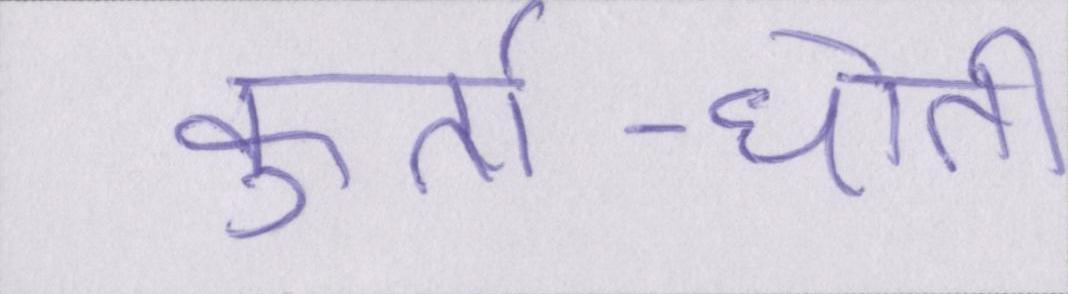 कुर्ता-धोती